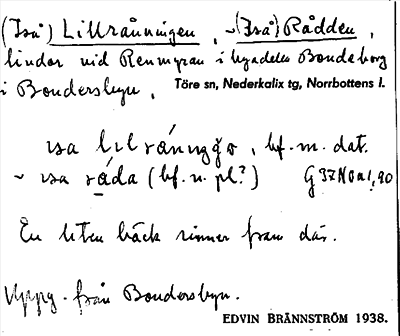 (Iså) Lillrånningen, ~(Iså) Rådden,
lindor vid Renmyran i byadelen Bondeborg
i Bondersbyn.
Töre sn, Nederkalix tg, Norrbottens l.
bf. m. dat.
~ isa råda (bf. n. pl?)
En liten bäck rinner fram där.
Uppg. från Bondersbyn.
EDVIN BRÄNNSTRÖM 1938.